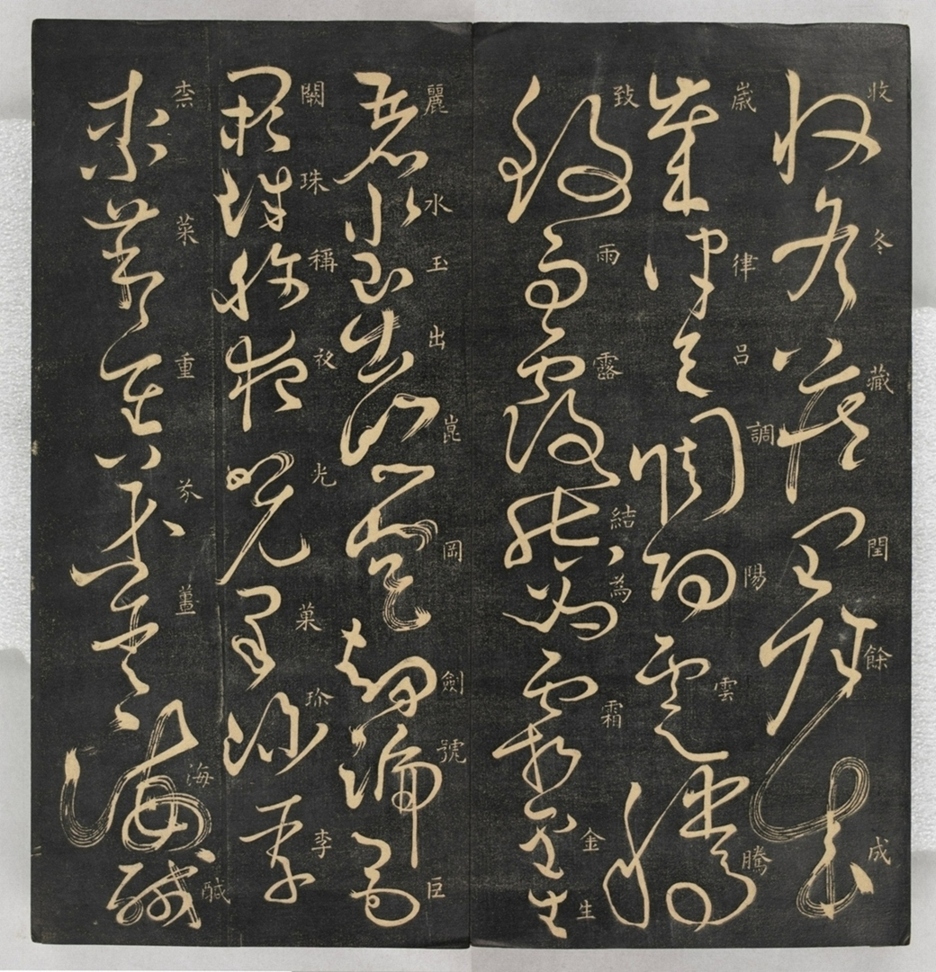 收冬藏閏餘成
歲律呂調陽雲騰
致雨露結為霜金生
麗水玉出崑岡劍號巨
闕珠稱夜光菓珍李
柰菜重芥薑海醎